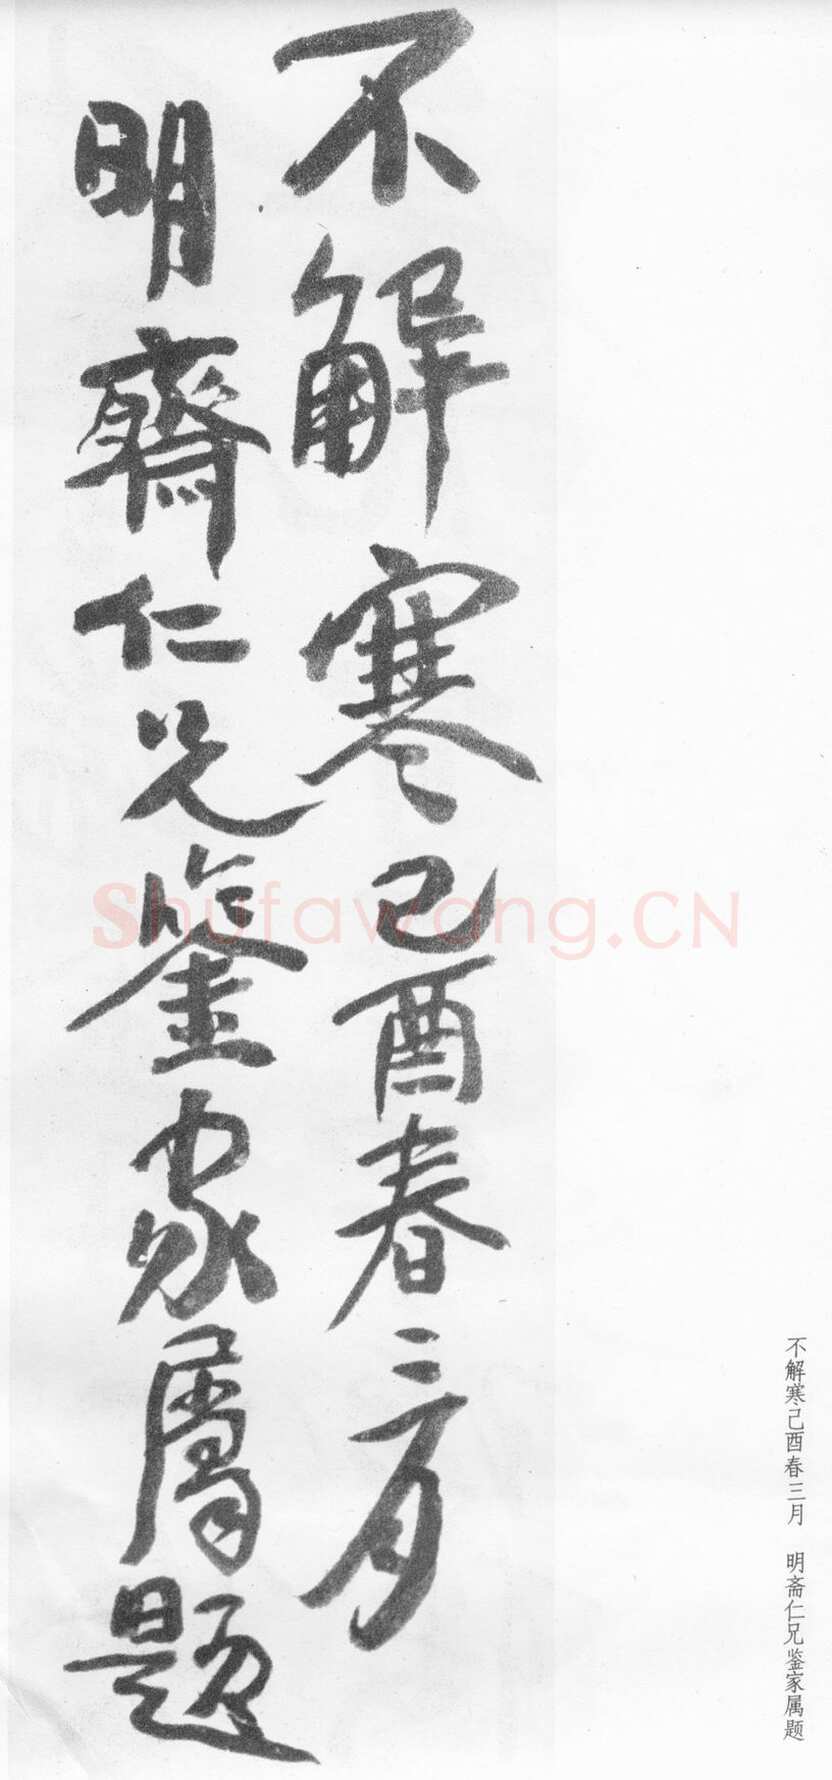 不解寒己酉春三月
明齋仁兄鑒家屬題
不解寒己酉春三月　明斋仁兄鉴家属题
Shufawang.CN